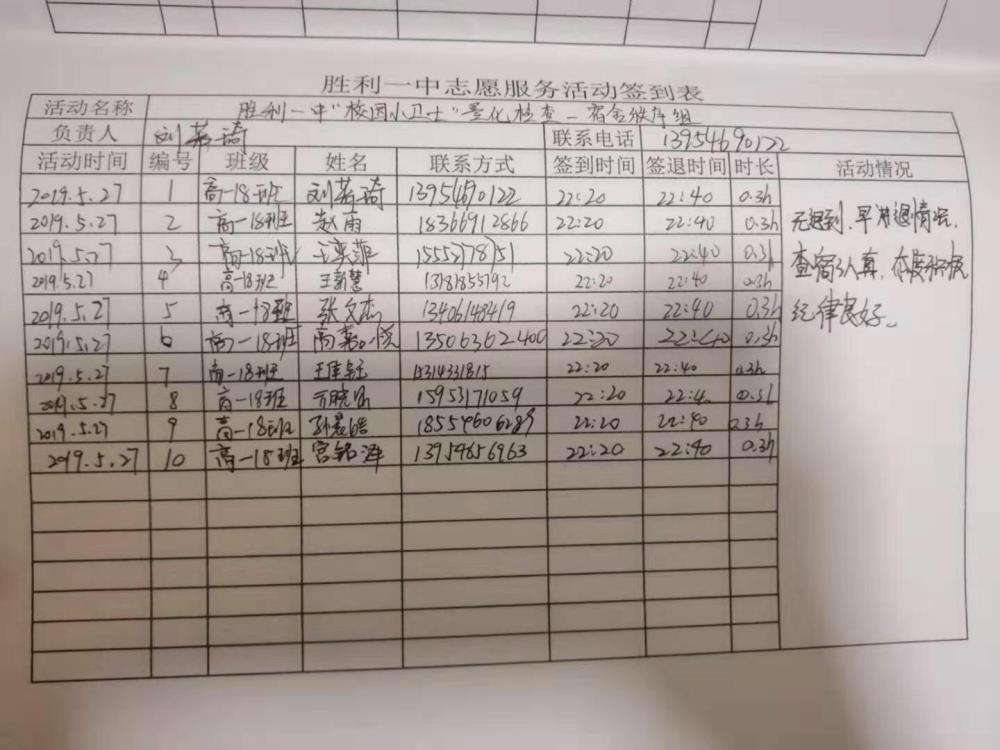 胜利一中志愿服务活动签到表
活动名称 胜利一中"校园小卫士"量化检查-宿舍秩序组
负责人 刘若琦 联系电话 13954690122
活动时间 编号 班级 姓名 联系方式 签到时间 签退时间 时长 活动情况
2019.5.27 1 高一18班 刘若琦 22:20 22:40 0.3h
2019.5.27 2 高一18班 赵雨 18366912866 22:20 22:40 0.3h
无迟到、早退情况,
2019.5.27 3 高一18班 王奕菲 22:20 22:40 0.3h
查宿认真,态度积极
2019.5.27 4 高一18班 王新慧 13181855792 22:20 22:40 0.3h
2019.5.27 5 高一18班 张文杰 13406148419 22:20 22:40 0.3h
纪律良好。
2019.5.27 6 高一18班 13506362400 22:20 22:40 0.3h
2019.5.27 7 高一18班 22:20 22:40 0.3h
2019.5.27 8 高一18班 15953171059 22:20 0.3h
2019.5.27 9 高一18班 22:20 22:40 0.3h
2019.5.27 10 高一18班 宫铭泽 13954656963 22:20 22:40 0.3h